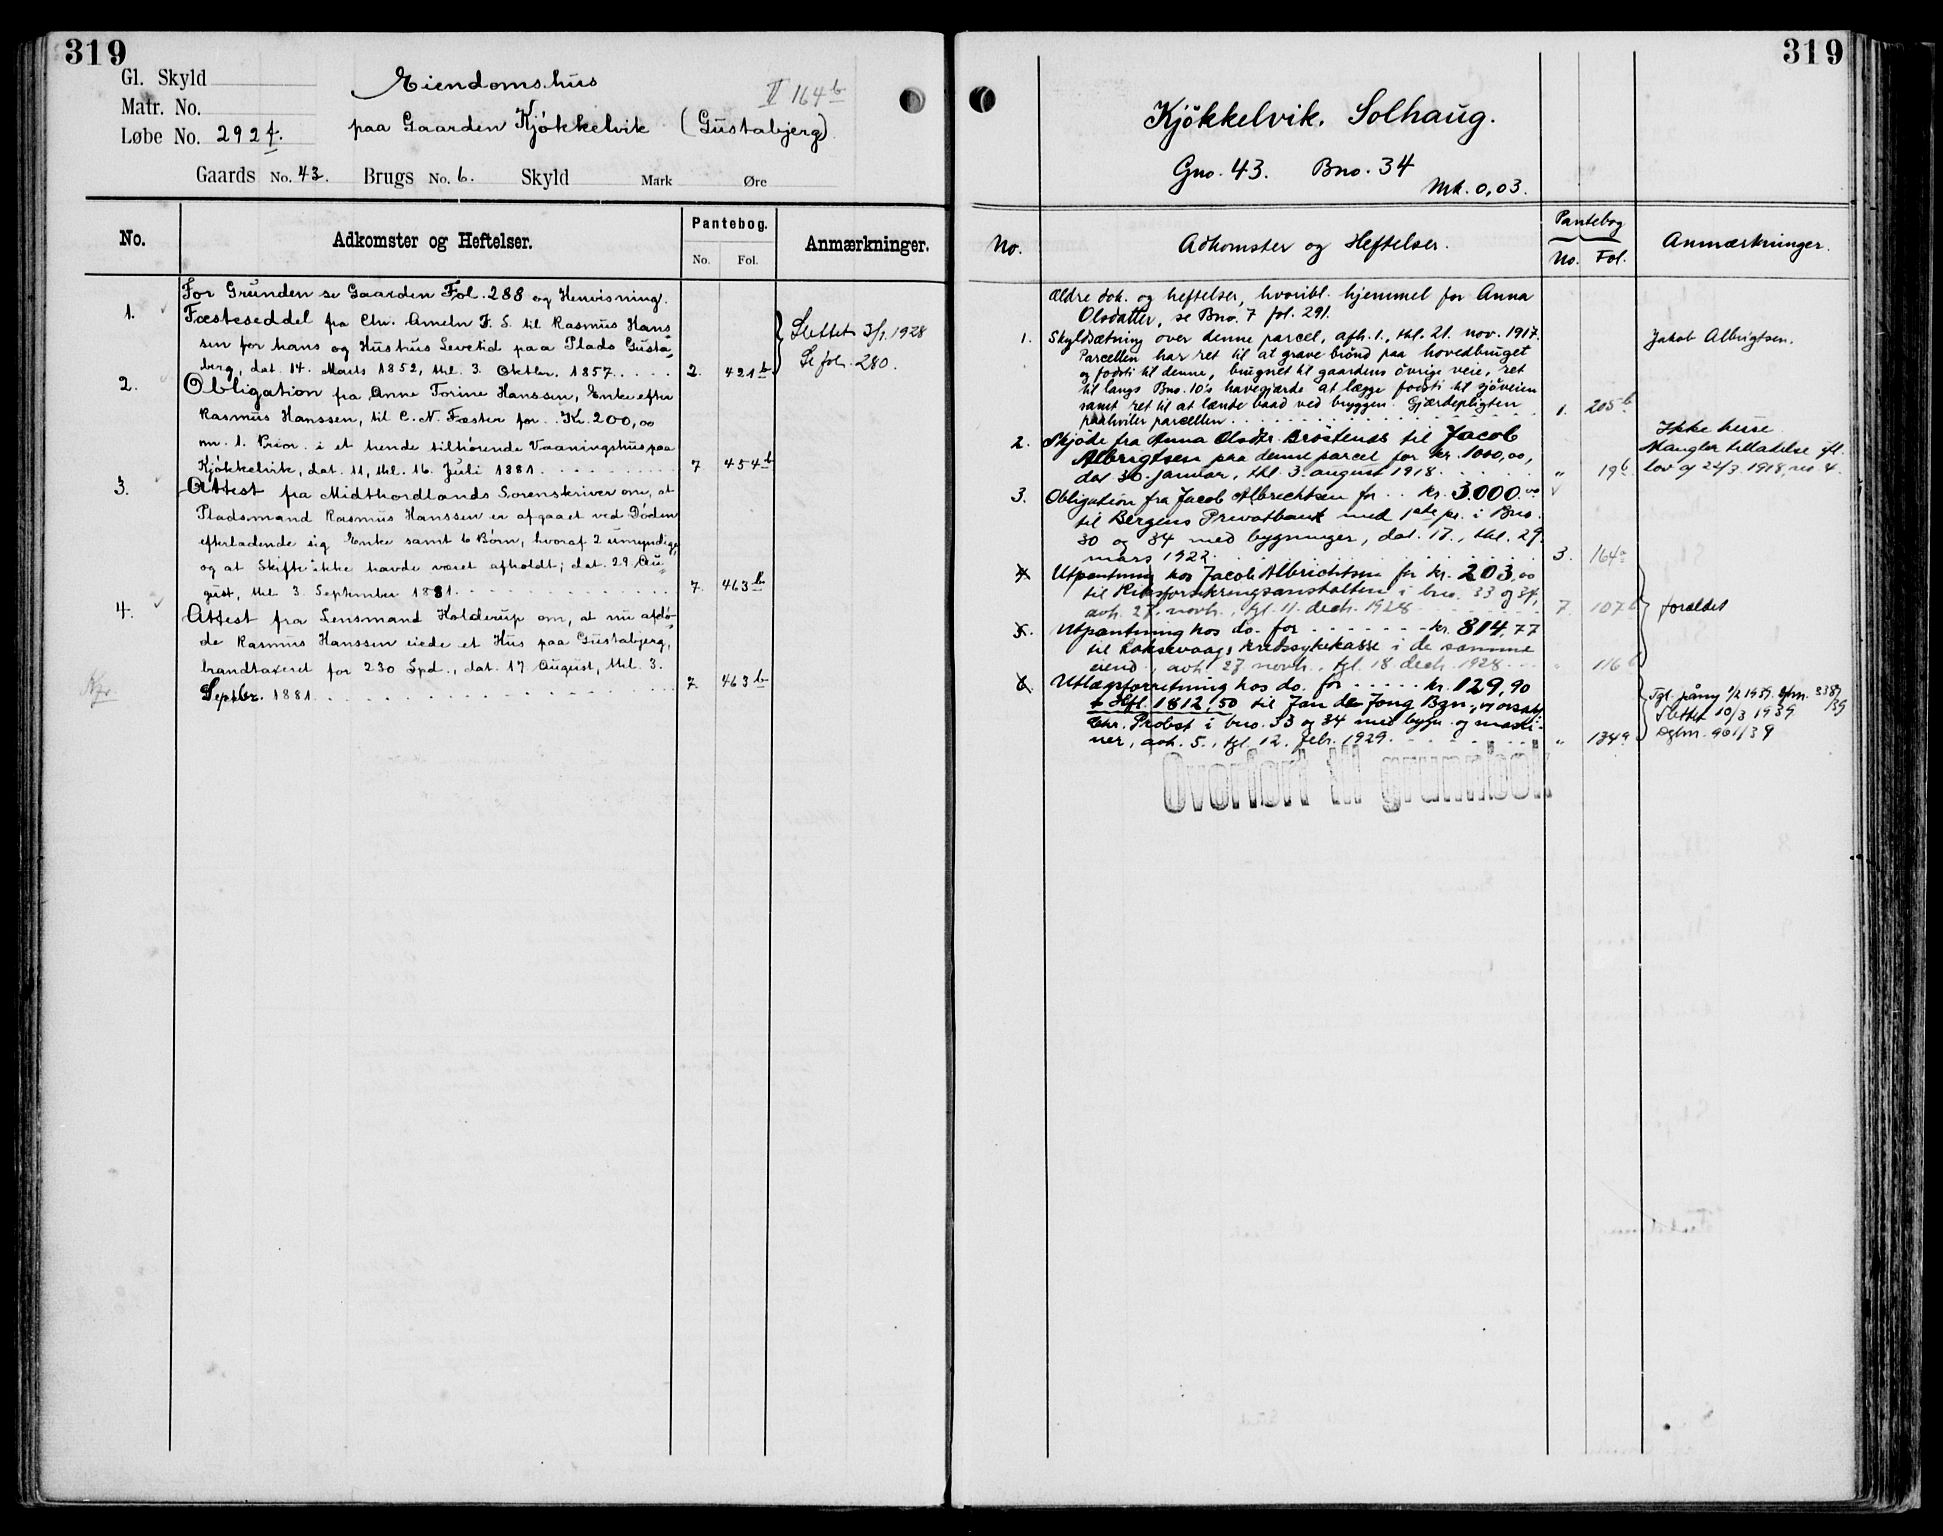 319
Gl. Skyld
Matr. No.
Løbe No. 292f.
Eiendomshus
paa Gaarden Kjøkkelvik (Gustabjerg)
II 164b
Gaards No. 43. Brugs No. 6. Skyld Mark Øre
No. Adkomster og Heftelser. Pantebog. No. Fol. Anmærkninger.
For Grunden se Gaarden Fol. 288 og Henvisning.
1. Fæsteseddel fra Chr. Ameln F. S. til Rasmus Hans
sen for hans og Hustrus Levetid paa Plads Gusta
berg, dat. 14. Marts 1852, thl. 3. Oktbr. 1857..... 2. 421b
Slettet 3/7 1928
Se fol. 280.
2. Obligation fra Anne Torine Hanssen, Enke efter
Rasmus Hanssen, til C. N. Faster for.. Kr. 200,00
m. 1. Prior. i et hende tilhørende Vaaningshus paa
Kjøkkelvik, dat. 11, thl. 16. Juli 1881. 7 454b
3. Attest fra Midthordlands Sorenskriver om, at
Pladsmand Rasmus Hanssen er afgaaet ved Døden
efterladende sig Enke samt 6 Børn, hvoraf 2 umyndige,
og at Skifte ikke havde været afholdt; dat. 29. Au
gust, thl. 3. September 1881. 7. 463b
4. Attest fra Lensmand Holderup om, at nu afdø-
de Rasmus Hanssen eiede et Hus paa Gustabjerg,
brandtaxeret for 230 Spd., dat. 17 August, thl. 3.
Septbr. 1881. 7. 463b
319
Kjøkkelvik. Solhaug.
Gno. 43. Bno. 34
Mk. 0,03.
No. Adkomster og Heftelser. Pantebog No. Fol. Anmærkninger.
Ældre dok. og heftelser, hvoribl. hjemmel for Anna
Olsdatter, se Bno. 7 fol. 291.
1. Skyldsætning over denne parcel, afh. 1., thl. 21. nov. 1917. Jakob Albrigtsen.
Parcellen har ret til at grave brønd paa hovedbruget
og fodsti til denne, brugsret til gaardens øvrige veie, ret
til langs Bno. 10's havegjærde at lægge fodsti til sjøveien
samt ret til at lænde baad ved bryggen. Gjærdepligten
paahviler parcellen. 1. 205b
2. Skjøde fra Anna Olsdtr. Brøstenes til Jacob
Albrigtsen paa denne parcel for kr. 1000,00,
dat 30. januar, thl. 3. august 1918. " 19b
Ikke huse
Mangler tilladelse ifl.
lov af 24/3. 1918, no 4.
3. Obligation fra Jacob Albrechtsen for.. kr. 3000.00
til Bergens Privatbank med 1ste pr. i Bno.
30 og 34 med bygninger, dat. 17., thl. 29.
mars 1922. 3. 164a
4. Utpantning hos Jacob Albrichtsen for kr. 203,00
til Riksforsikringsanstalten i bno. 33 og 34,
avh. 27. novb., tgl. 11. decb. 1928 7. 107b foreldet
5. Utpantning hos do. for kr. 814,77
til Laksevaags kredssykekasse i de samme
eiend., avh. 27 novb., tgl. 18 decb. 1928 " 116b
6. Utlægsforretning hos do. for kr. 129,90
+ Hfl. 1812,50 til Jan de Jong Bgn., v/ orsakf.
Chr. Probst i bno. 33 og 34 med bygn. og maski-
ner, avh. 5., tgl. 12. febr. 1929. " 134a
Tgl. påny 1/2 1939. Dgbnr. 338/39
Slettet 10/3 1939
Dgbnr. 901/39
Overført til grunnbok